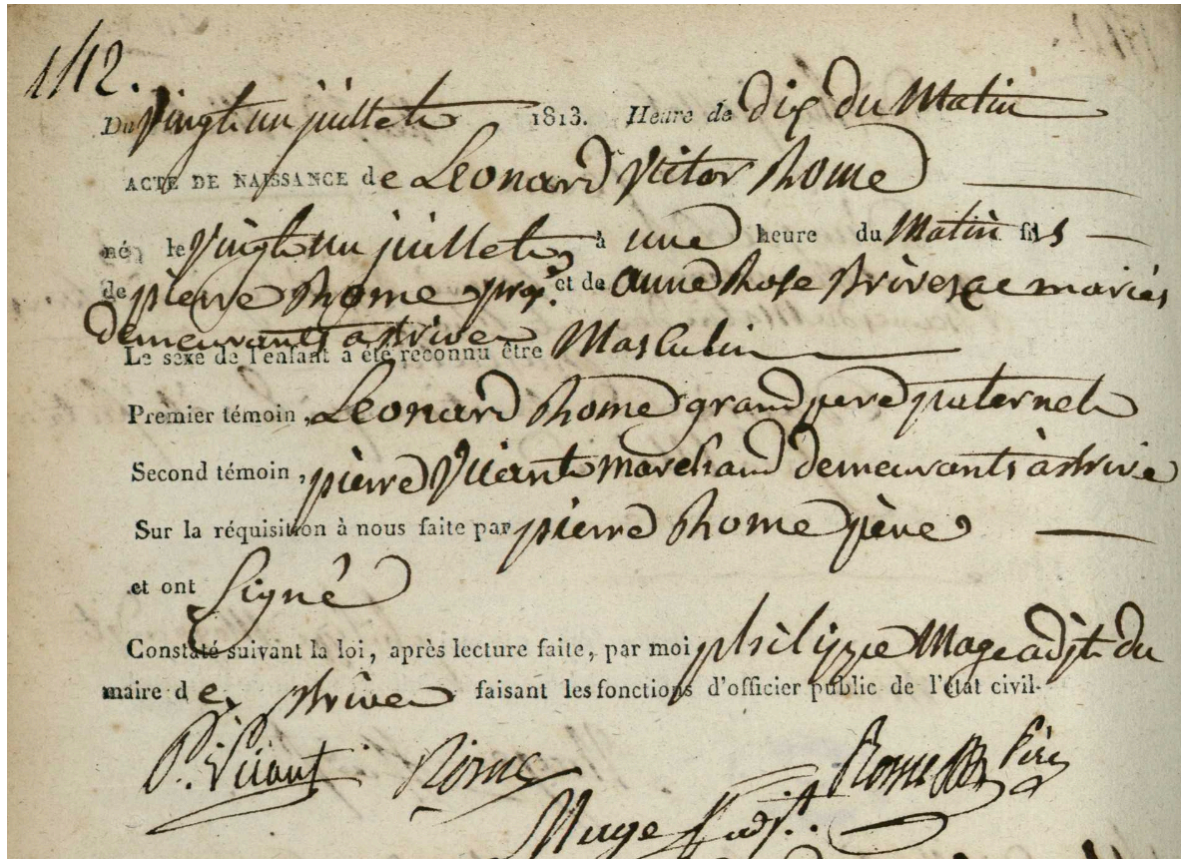 112.
Du vingt un juillet 1813. Heure de dix du Matin
ACTE DE NAISSANCE de Leonard Victor Rome
né le vingt un juillet à une heure du Matin fils
de pierre Rome propre. et de anne Rose Brivezac mariés
demeurants a Brive
Le sexe de l'enfant a été reconnu être Masculin
Premier témoin, Leonard Rome grand pere paternel
Second témoin, pierre marchand demeurants à Brive
Sur la réquisition à nous faite par pierre Rome père
et ont Signé
Constaté suivant la loi, après lecture faite, par moi philippe Mage adjt du
maire de Brive faisant les fonctions d'officier public de l'état civil.
Rome Rome Père
Mage adjt.